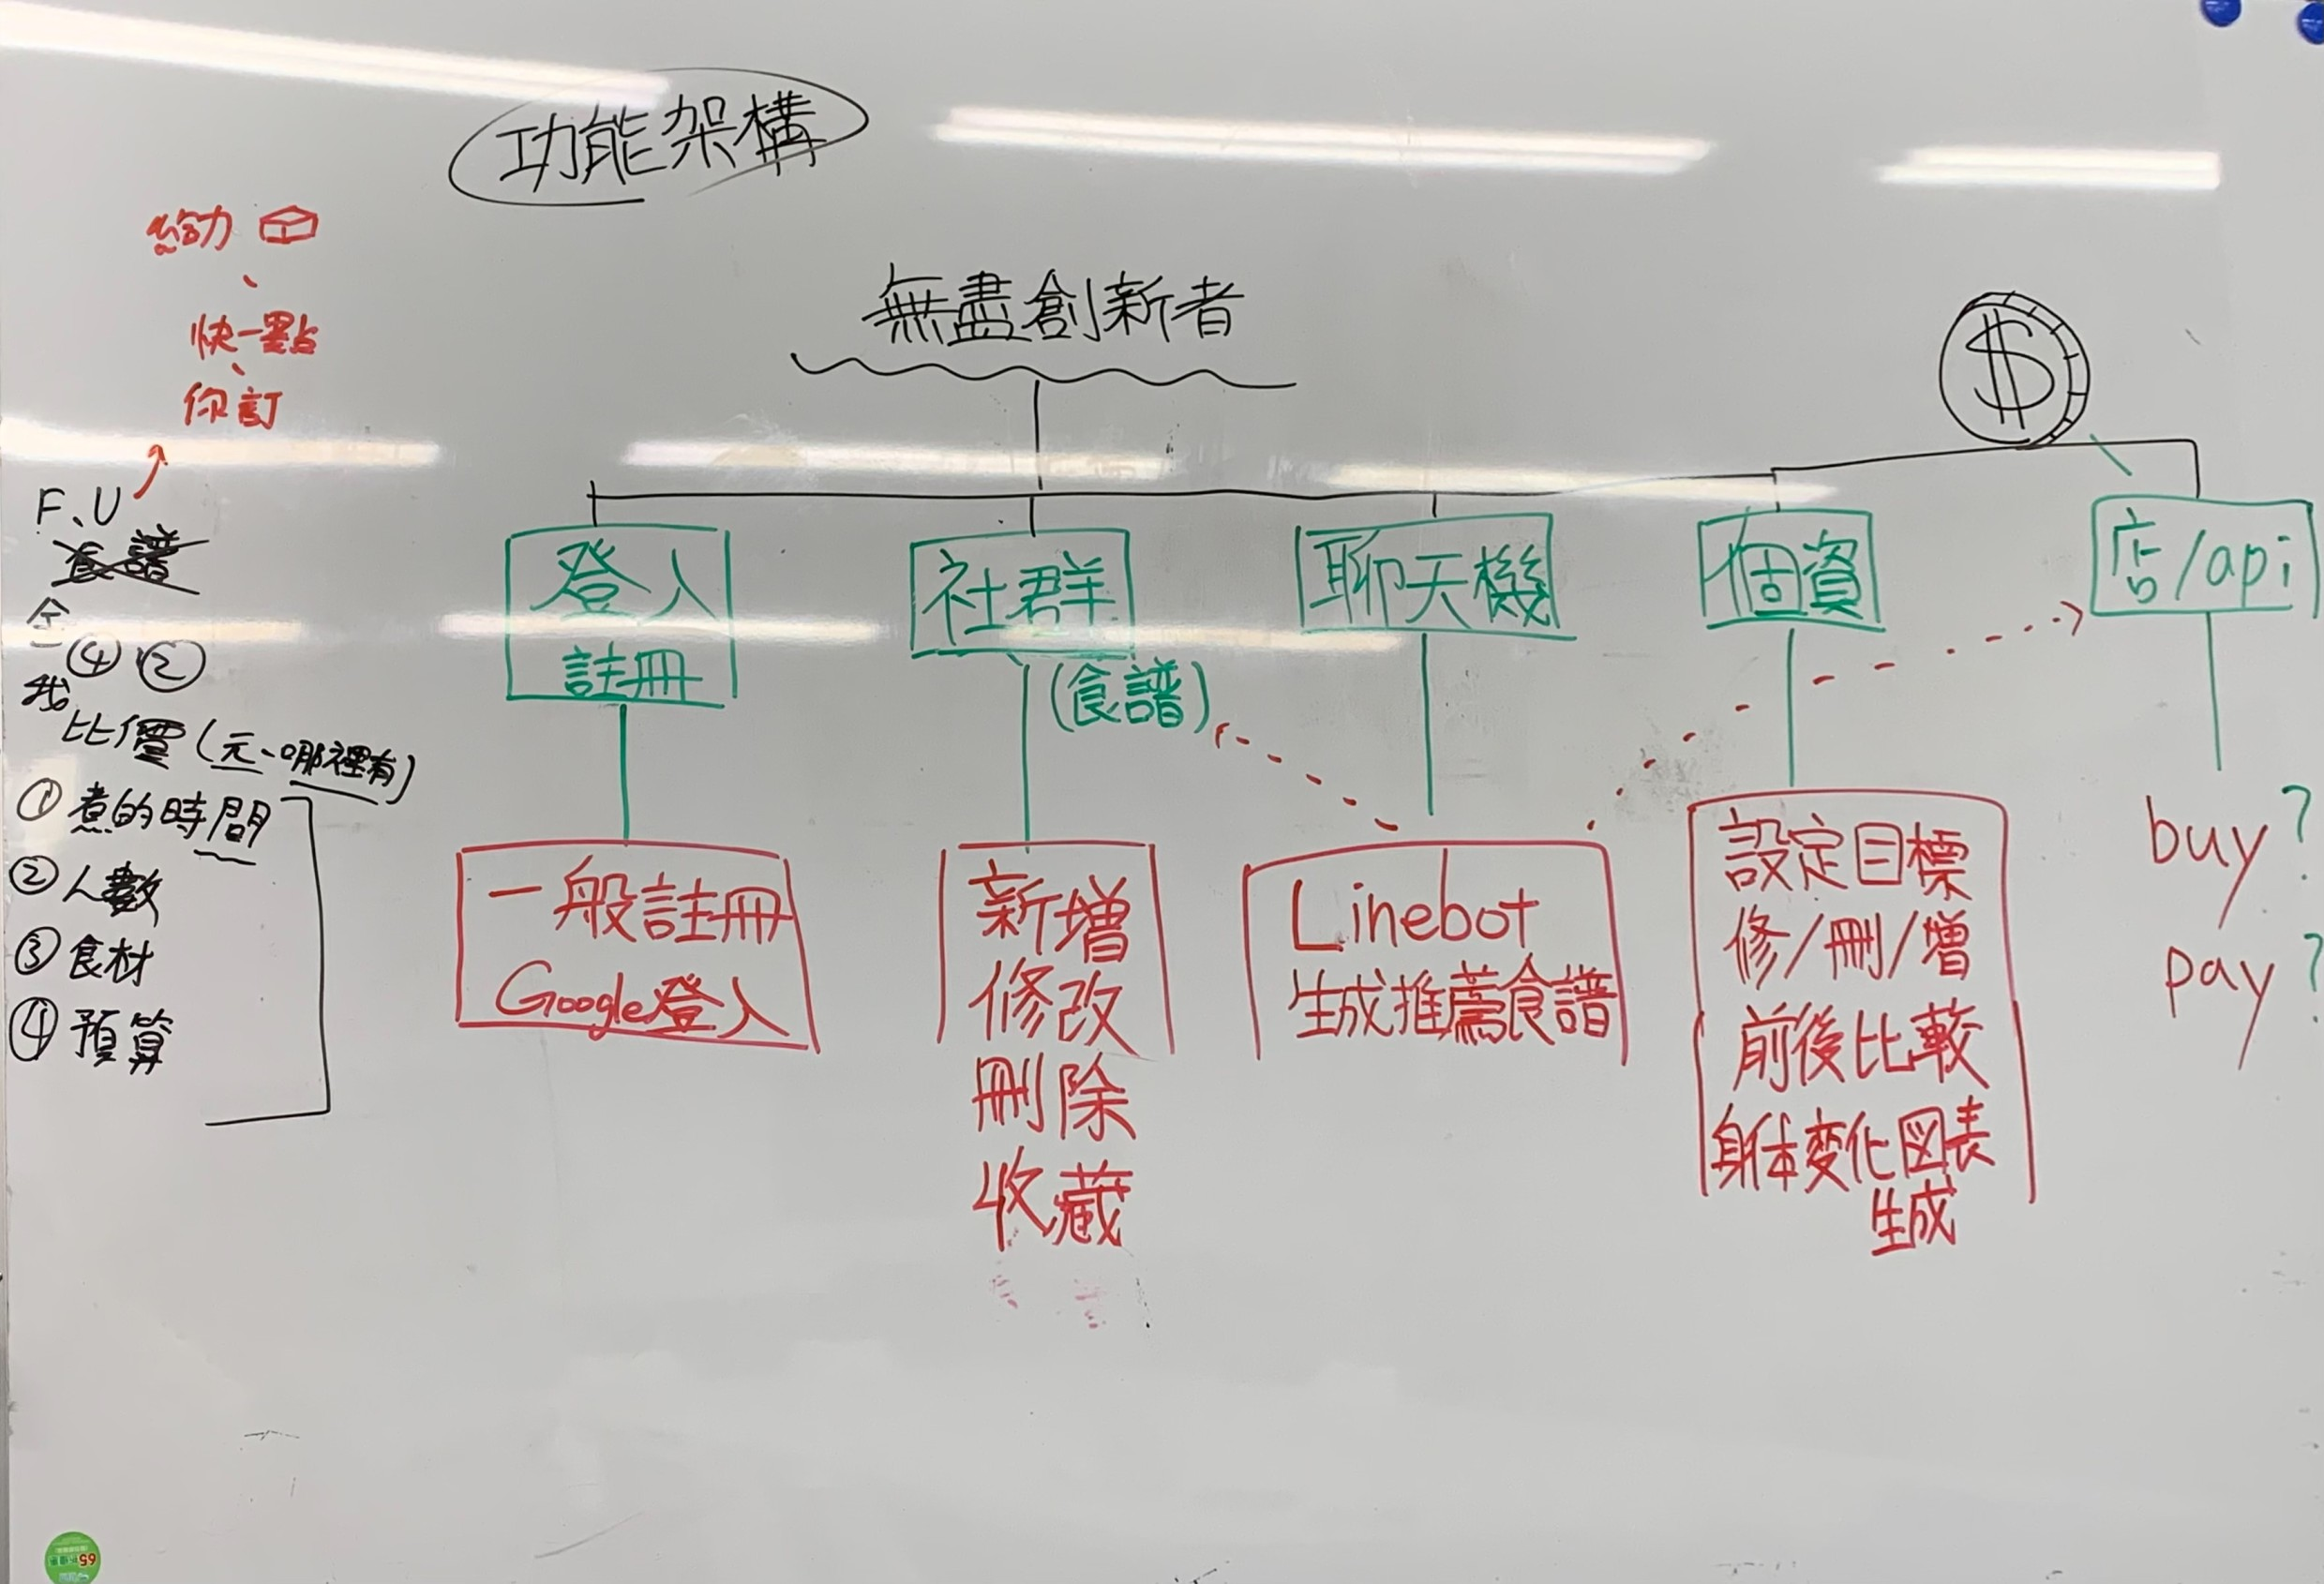 功能架構
給力
、
快一點
、
你訂
無盡創新者
$
F、U
食譜
④ ②
我
比價(元、哪裡有)
①煮的時間
②人數
③食材
④預算
登入
註冊
一般註冊
Google登入
社群
(食譜)
新增
修改
刪除
收藏
聊天機
Linebot
生成推薦食譜
個資
設定目標
修/刪/增
前後比較
身体變化図表
生成
店/api
buy?
pay?